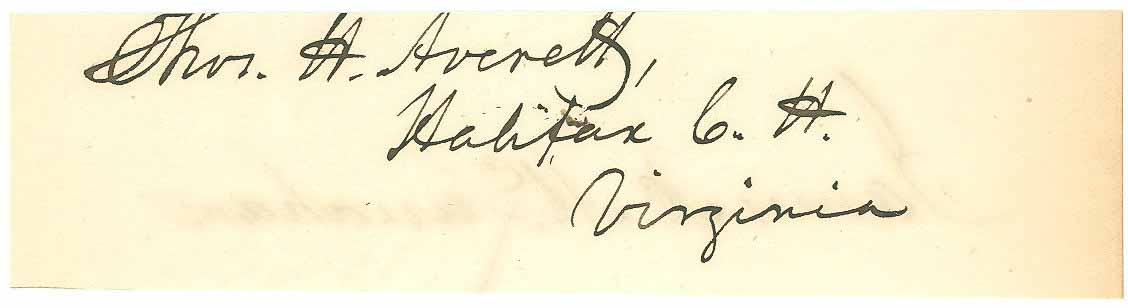 Thos. H. Averett,
Halifax C. H.
Virginia